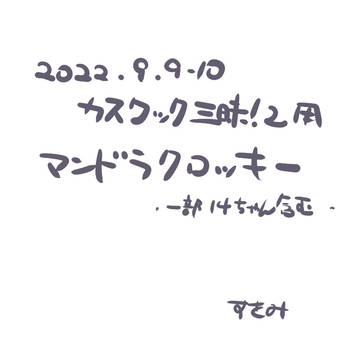 2022.9.9-10
カスクック三昧!2用
マンドラクロッキー
・一部14ちゃん含む・
すきみ